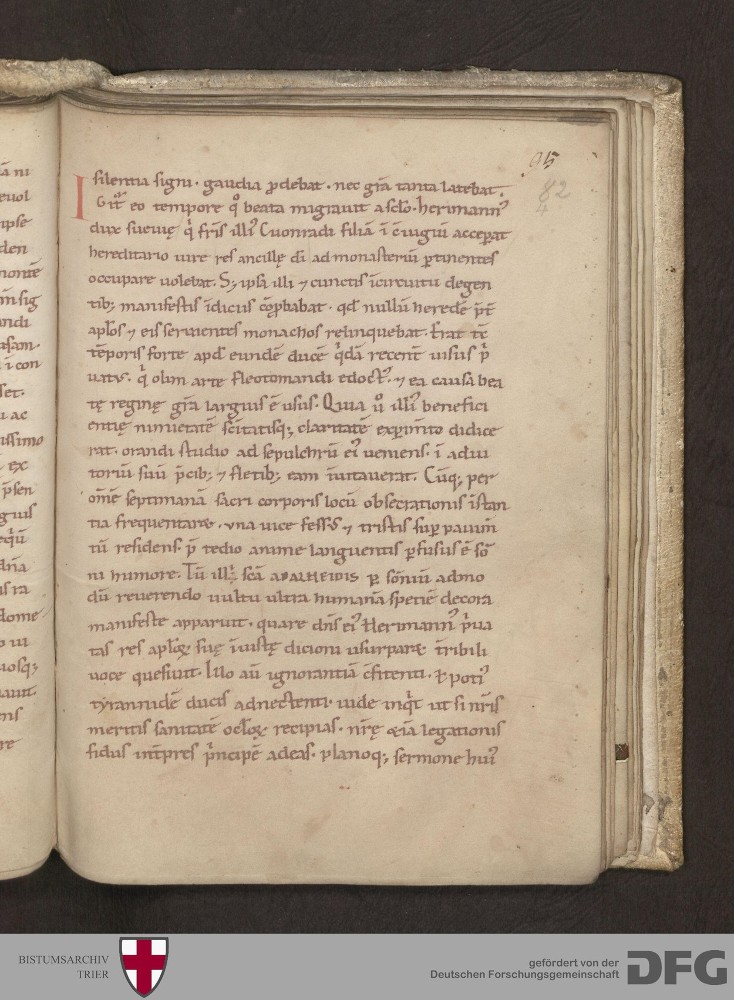 ia ni
euol
ipse
den
monte
m sig
ndi
i con
set.
u ac
issimo
ex
psen
guis
dna
is ra
dome
o ui
uosq;
auit
ens
re
95
82
4
silentia signi. gaudia ꝓdebat. nec gr̄a tanta latebat.
Igit͛ eo tempore qͦ beata migrauit a sc̄lo. herimannꝰ
dux sueuię qͥ fr̄is illiꝰ Cuonradi filiā ī c̄iugiū accep̱at
hereditario iure res ancillę dī ad monasteriū ꝑtinentes
occupare uolebat. S; ipsa illi ⁊ cunctis īcircuitu degen
tib; manifestis īdiciis cōꝓbabat. qd̄ nullū heredē p̄t̄
apl̄os ⁊ eis seruientes monachos relinquebat. Erat tc̄
tēporis forte apd̄ eundē ducē qͥdā recent̄ uisus pͥ
uatus. qͥ olim arte fleotomandi edoctꝰ. ⁊ ea causa bea
tę reginę gr̄a largius ē usus. Quia u͛ illiꝰ benefici
entię nimietatē sc̄itatisq; claritatē expim̄to didice
rat. orandi studio ad sepulchrū eiꝰ ueniens. ī adiu
toriū suū p̄cib; ⁊ fletib; eam īuitauerat. Cūq; per
om̄e septimanā sacri corporis locū obsecrationis īstan
tia frequentaret. una uice fessus ⁊ tristis suꝑ pauim̄
tū residens. p̄ tedio anime languentis ꝑfusus ē sō
ni humore. Tū illi sc̄a ADALHEIDIS ꝑ sōniū admo
dū reuerendo uultu ultra humanā speciē decora
manifeste apparuit. quare dn̄s eiꝰ Herimannꝰ pͥua
tas res apl̄oꝝ suę īiustę dicioni usurparet t̄ribili
uoce quesiuit. Illo aū ignorantiā c̄fitenti. ⁊ potiꝰ
tyrannidē ducis adnectenti. uide inqͥt ut si nr̄is
meritis sanitatē ocl̄oꝝ recipias. nr̄ę
legationis
fidus int̄pres pͥncipē adeas. planoq; sermone huiꝰ
BISTUMSARCHIV
TRIER
gefördert von der
Deutschen Forschungsgemeinschaft
DFG